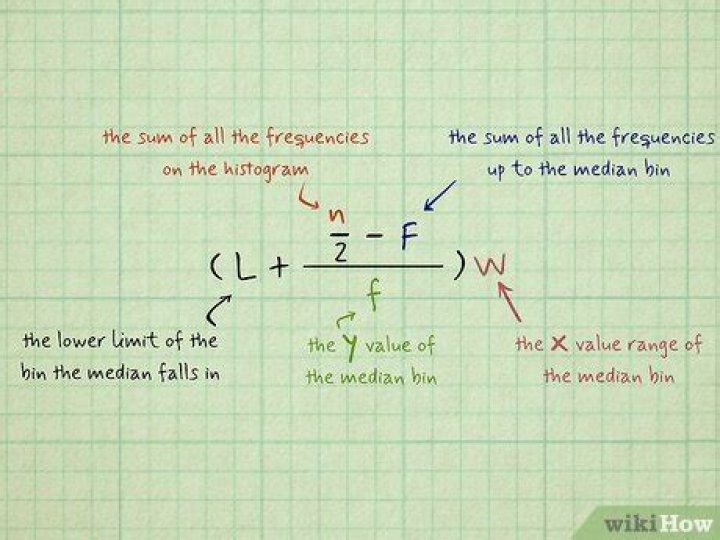 the sum of all the frequencies
on the histogram
the sum of all the frequencies
up to the median bin
(L + (n/2 - F)/f)W
the lower limit of the
bin the median falls in
the y value of
the median bin
the X value range of
the median bin
wikiHow